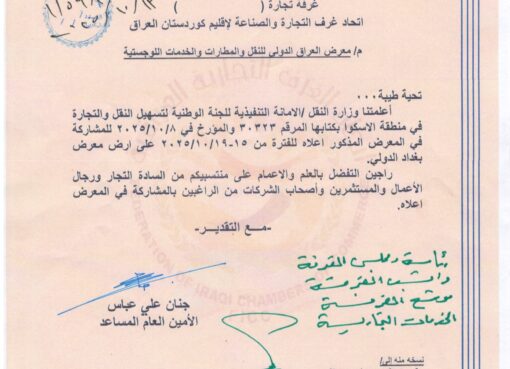 غرفة تجارة (                    )
اتحاد غرف التجارة والصناعة لإقليم كوردستان العراق
م/ معرض العراق الدولي للنقل والمطارات والخدمات اللوجستية
تحية طيبة...
أعلمتنا وزارة النقل /الامانة التنفيذية للجنة الوطنية لتسهيل النقل والتجارة
في منطقة الاسكوا بكتابها المرقم ٣٠٣٢٣ والمؤرخ في ٢٠٢٥/١٠/٨ للمشاركة
في المعرض المذكور اعلاه للفترة من ١٥-٢٠٢٥/١٠/١٩ على ارض معرض
بغداد الدولي.
راجين التفضل بالعلم والاعمام على منتسبيكم من السادة التجار ورجال
الأعمال والمستثمرين وأصحاب الشركات من الراغبين بالمشاركة في المعرض
اعلاه.
-مع التقدير-
جنان علي عباس
الأمين العام المساعد
الخدمات التجارية
نسخه منه إلى/